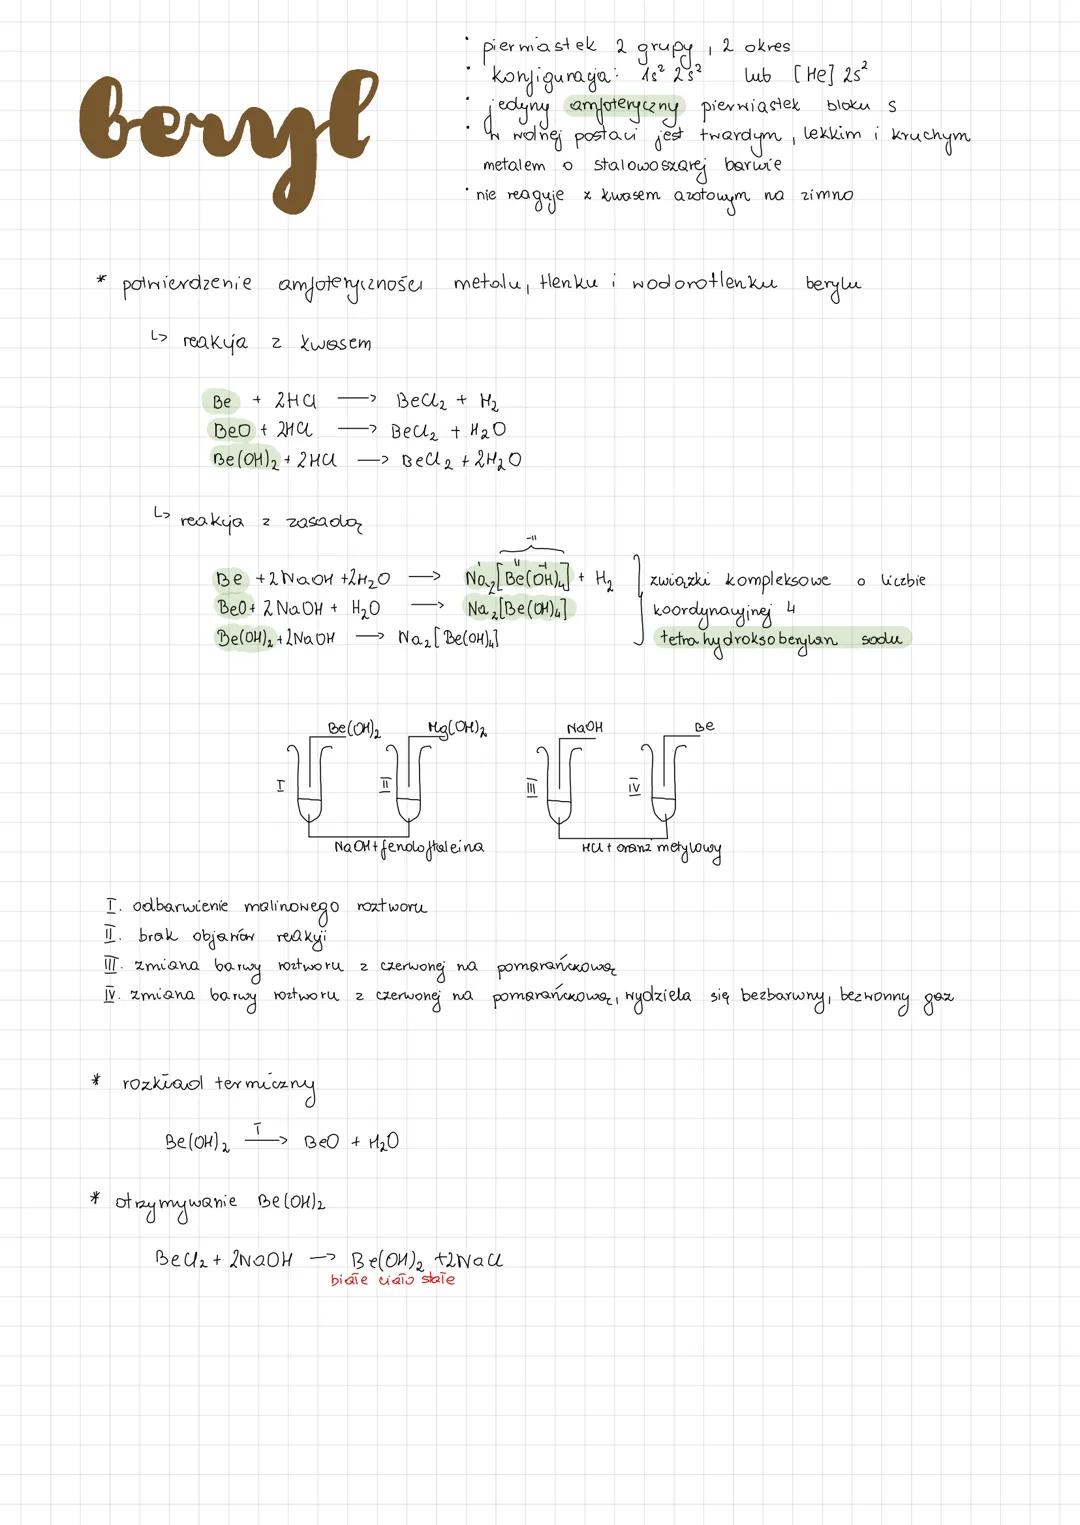 beryl
· pierwiastek 2 grupy, 2 okres
· konfiguracja: 1s² 2s² lub [He] 2s²
· jedyny amfoteryczny pierwiastek bloku s
· w wolnej postaci jest twardym, lekkim i kruchym
metalem o stalowoszarej barwie
· nie reaguje z kwasem azotowym na zimno
* potwierdzenie amfoteryczności metalu, tlenku i wodorotlenku berylu
↳ reakcja z kwasem
Be + 2HCl → BeCl₂ + H₂
BeO + 2HCl → BeCl₂ + H₂O
Be(OH)₂ + 2HCl → BeCl₂ + 2H₂O
↳ reakcja z zasadą
-II
I II -I
Be + 2NaOH + 2H₂O → Na₂[Be(OH)₄] + H₂
BeO + 2NaOH + H₂O → Na₂[Be(OH)₄]
Be(OH)₂ + 2NaOH → Na₂[Be(OH)₄]
związki kompleksowe o liczbie
koordynacyjnej 4
tetrahydroksoberylan sodu
Be(OH)₂ Mg(OH)₂ NaOH Be
I II III IV
NaOH + fenoloftaleina HCl + oranż metylowy
I. odbarwienie malinowego roztworu
II. brak objawów reakcji
III. zmiana barwy roztworu z czerwonej na pomarańczową
IV. zmiana barwy roztworu z czerwonej na pomarańczową, wydziela się bezbarwny, bezwonny gaz
* rozkład termiczny
Be(OH)₂ T→ BeO + H₂O
* otrzymywanie Be(OH)₂
BeCl₂ + 2NaOH → Be(OH)₂ + 2NaCl
białe ciało stałe